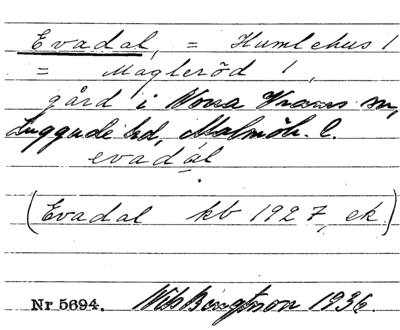 Evadal, = Humlehus 1
= Magleröd 1,
gård i Norra Vrams sn,
Luggude hd, Malmöh. l.
evadál
(Evadal kb 1927, ek.)
Nr 5694. Nils Bengtsson 1936.